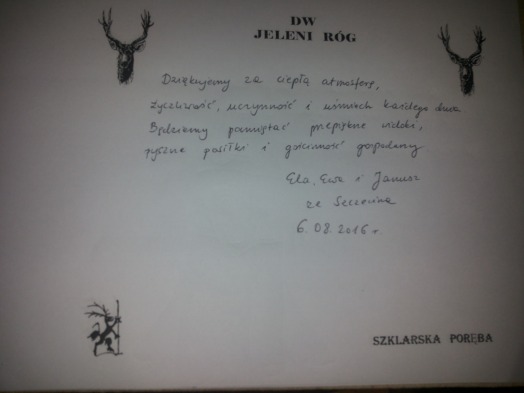 DW
JELENI RÓG
Dziękujemy za ciepłą atmosferę,
życzliwość, uczynność i uśmiech każdego dnia
Będziemy pamiętać przepiękne widoki,
pyszne posiłki i gościnność gospodarzy
Ela, Ewa i Janusz
ze Szczecina
6.08.2016 r.
SZKLARSKA PORĘBA